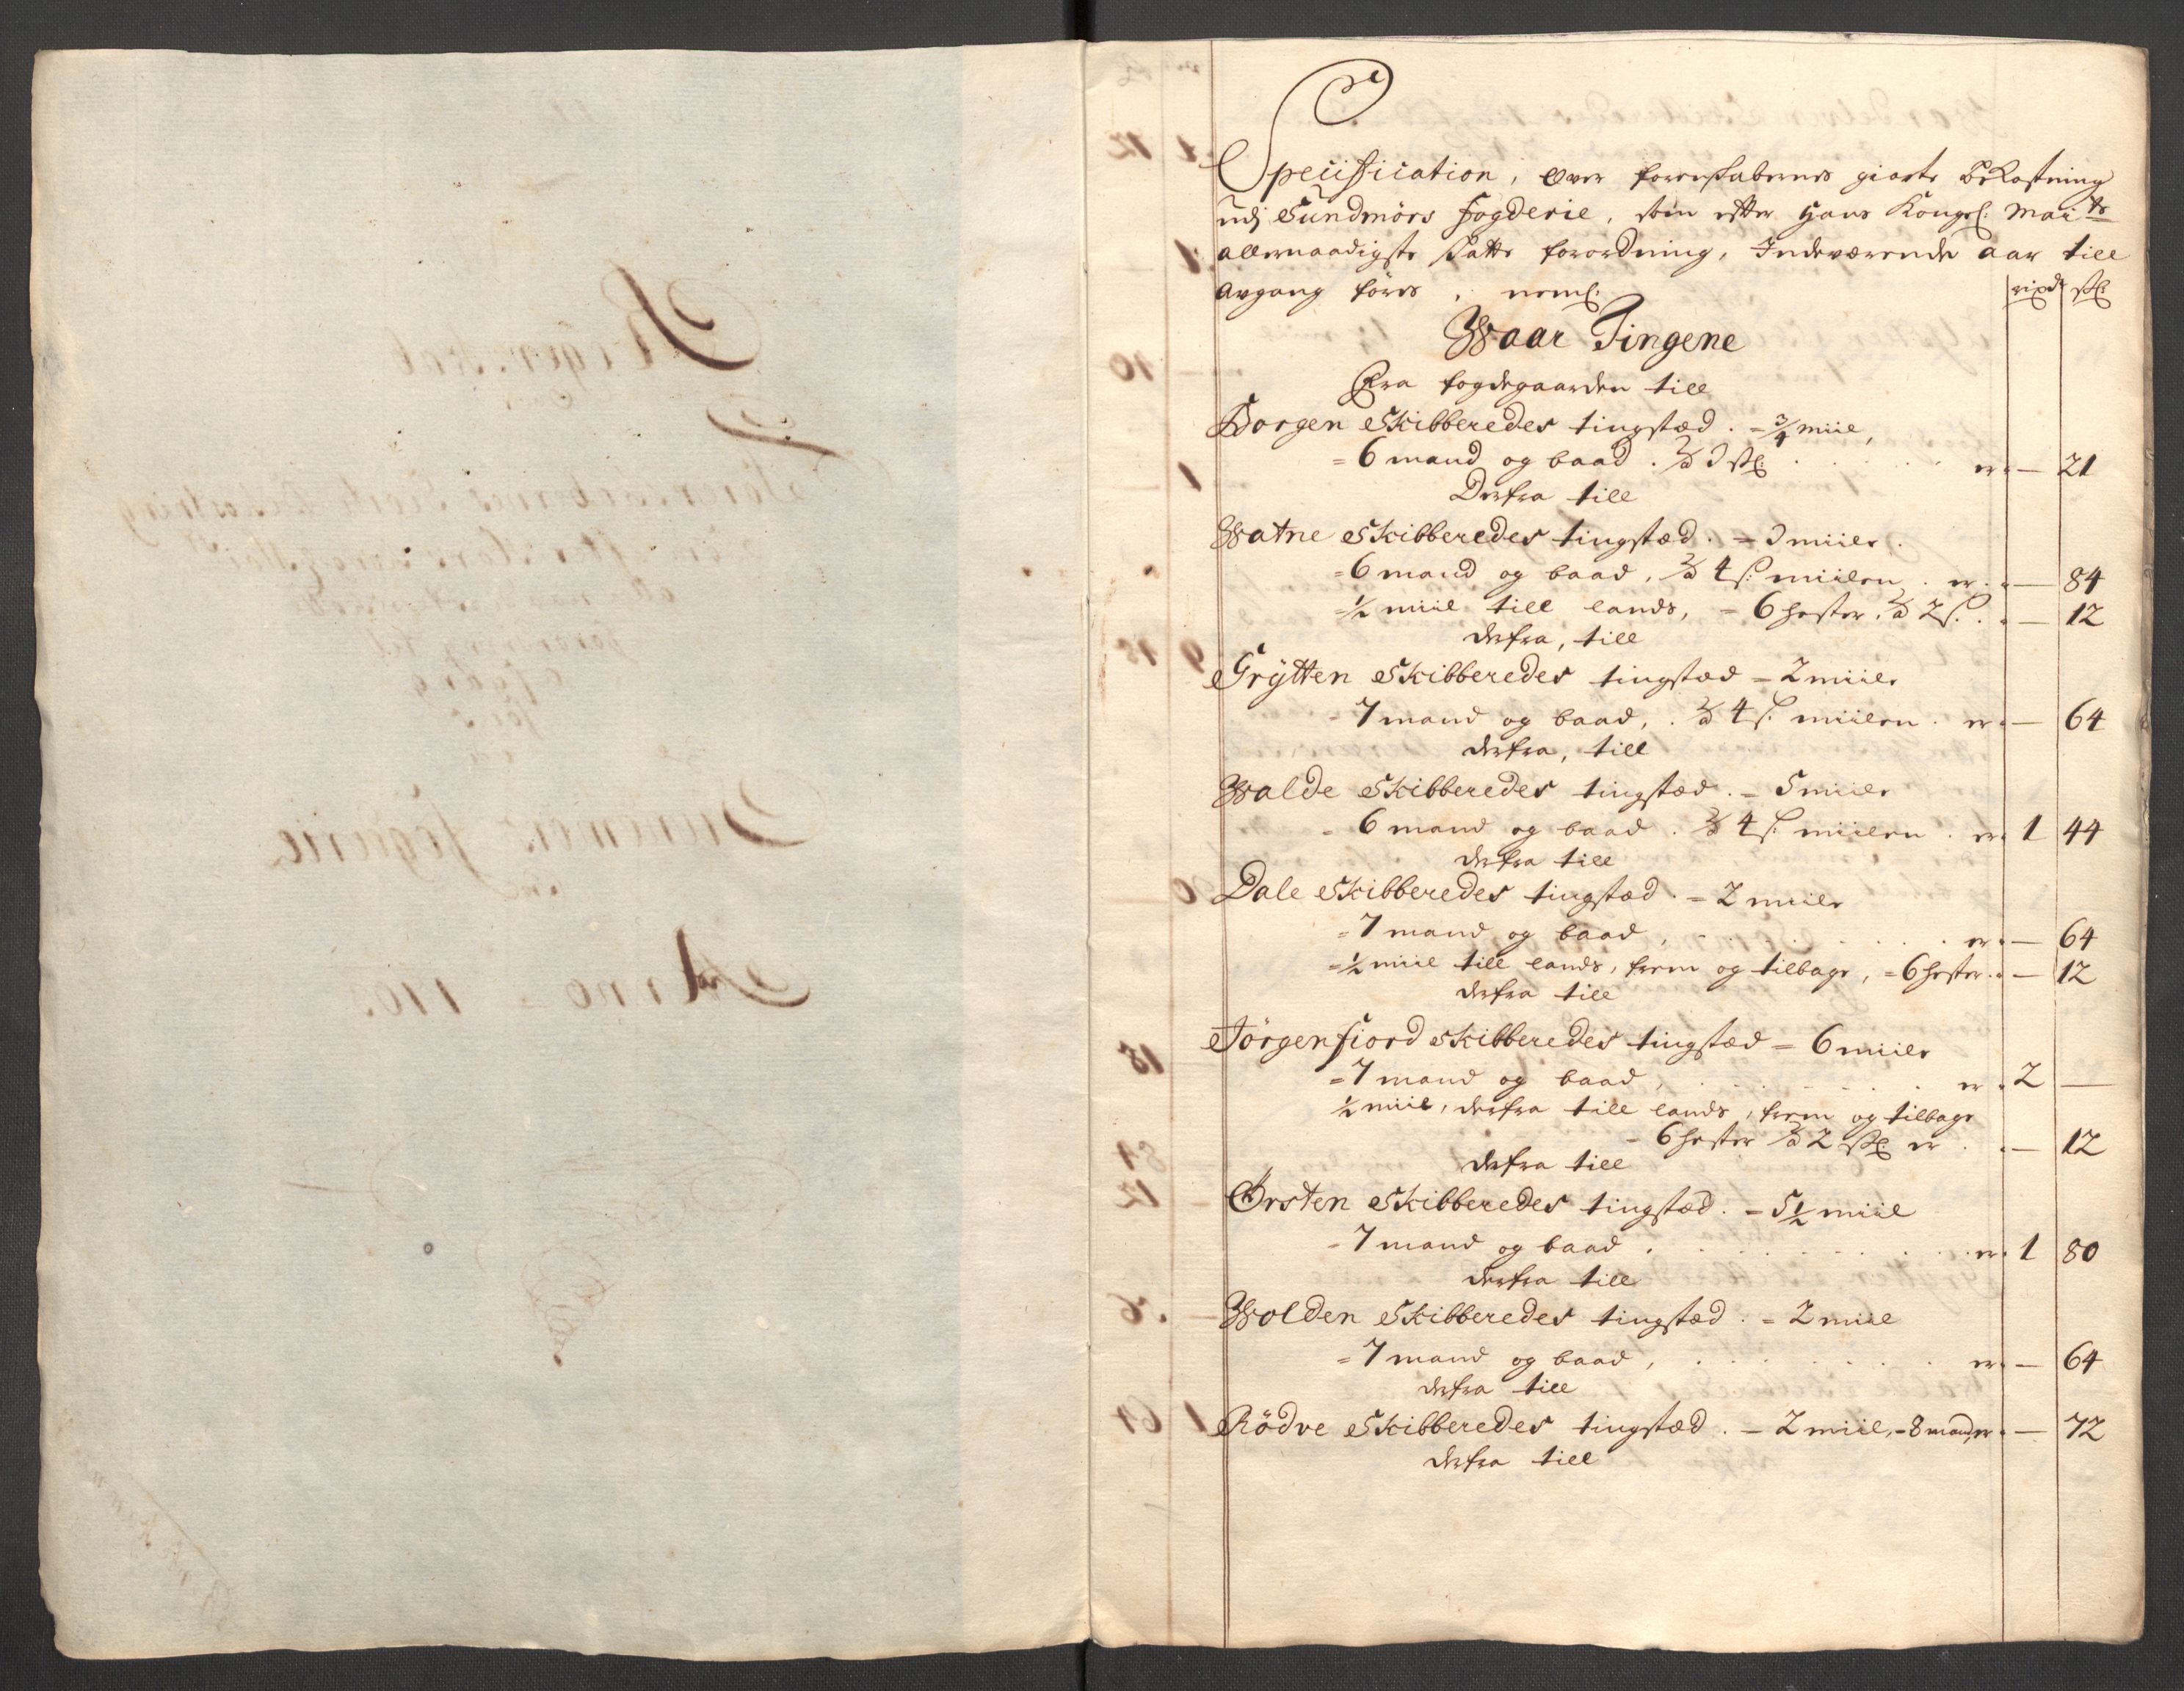 Specification, over forenskabernes giorte bekostning
udj Sundmörs fogderie, som efter Hans Kongel: Mai:ts
allernaadigste skatte forordning, Indeværende aar till
avgang föres, neml:
rixd sk:
Waar Tingene
Fra fogdegaarden till
Borgen Skibberedes tingstæd. - 3/4 miil,
= 6 mand og baad. à 3 sk: er - 21
Derfra till
Watne Skibberedes tingstæd. = 3 miiler.
= 6 mand og baad, à 4 s: miilen. er. - 84
= 1/2 miil till lands, = 6 hester. à 2 s: - 12
derfra, till
Grÿtten Skibberedes tingstæd = 2 miile
- 7 mand og baad, à 4 s: miilen. er - 64
derfra, till
Walde Skibberedes tingstæd. = 5 miile
- 6 mand og baad. à 4 s: miilen. er 1 44
derfra till
Dale Skibberedes tingstæd. = 2 miile
= 7 mand og baad, er - 64
= 1/2 miil till lands, frem og tilbage, = 6 hester. - 12
derfra till
Jörgenfiord skibberedes tingstæd = 6 miile
= 7 mand og baad, er 2 -
1/2 miil, derfra till lands, frem og tilbage
- 6 hester à 2 sk: er - 12
derfra till
Örsten Skibberedes tingstæd. = 5 1/2 miil
- 7 mand og baad. er. 1 80
derfra till
Wolden Skibberedes tingstæd. = 2 miil
= 7 mand og baad, er. - 64
derfra till
Rödve Skibberedes tingstæd. - 2 miil, = 8 mand, er - 72
derfra till